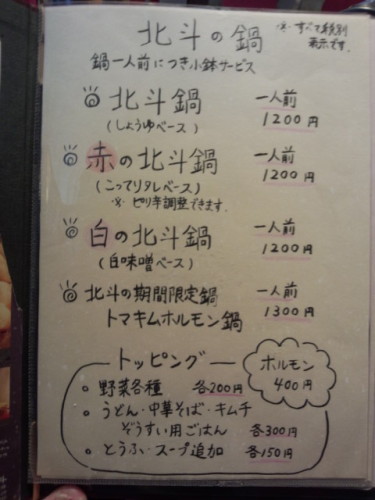 北斗の鍋
※すべて税別
表示です。
鍋一人前につき小鉢サービス
北斗鍋 一人前
(しょうゆベース) 1200円
赤の北斗鍋 一人前
(こってりタレベース) 1200円
※ピリ辛調整できます。
白の北斗鍋 一人前
(白味噌ベース) 1200円
北斗の期間限定鍋 一人前
トマキムホルモン鍋 1300円
トッピング
ホルモン
400円
○ 野菜各種 各200円
○ うどん・中華そば・キムチ
ぞうすい用ごはん 各300円
○ とうふ・スープ追加 各150円